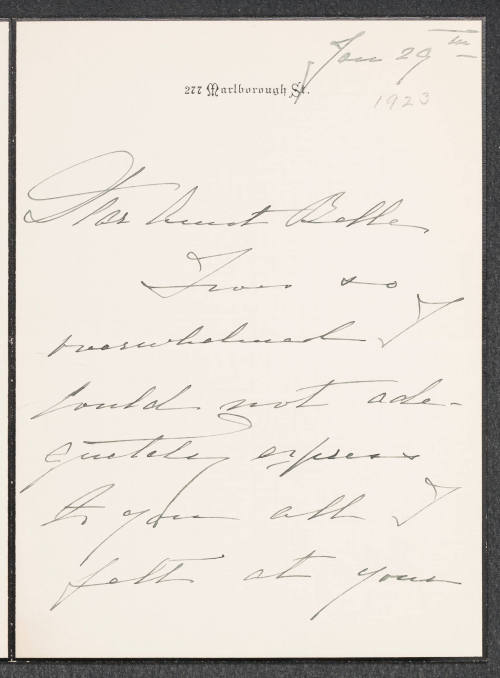 Jan 29th
1923
277 Marlborough St.
Dear Aunt Belle,
I was so
overwhelmed I
could not ade-
quately express
to you all I
felt at your